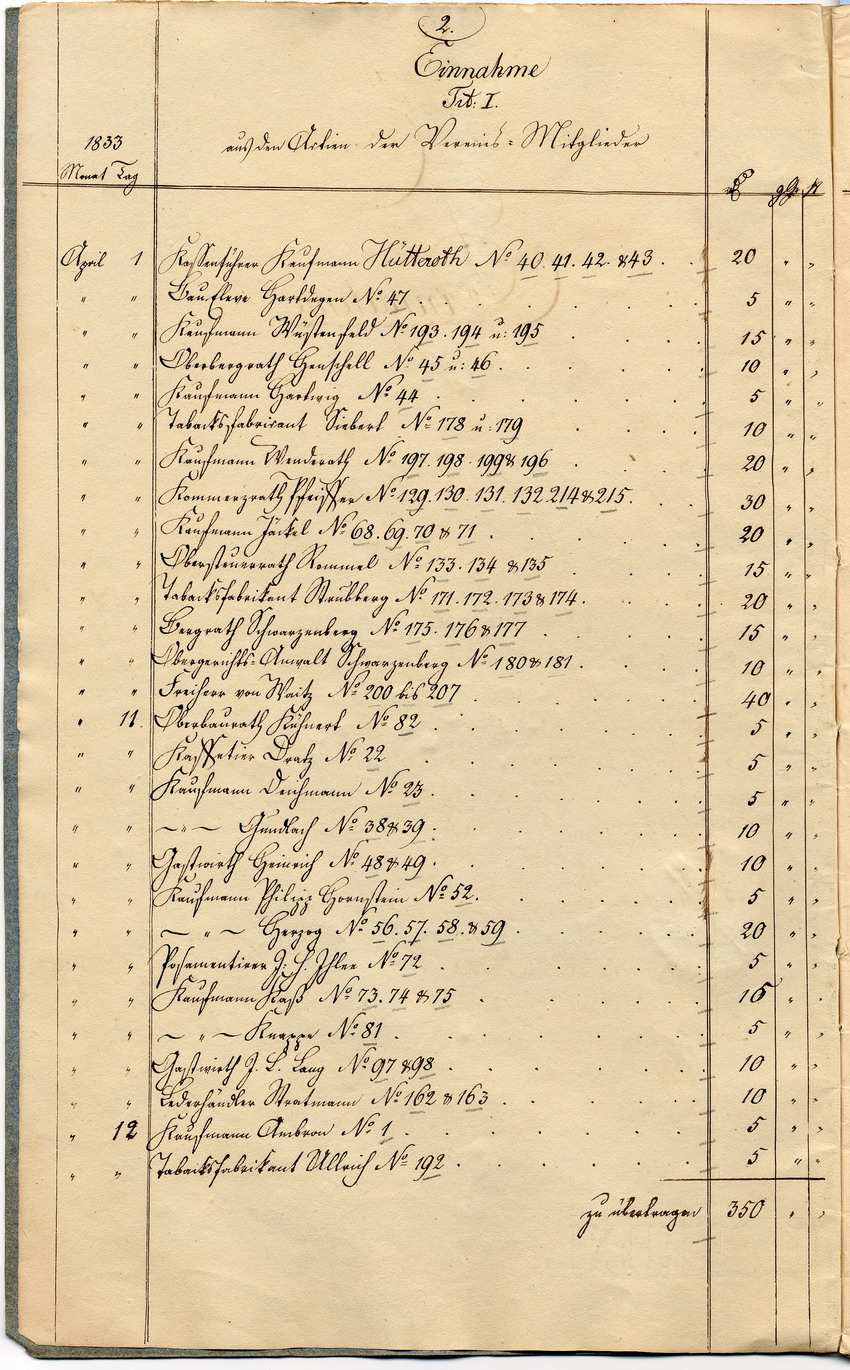 2.
Einnahme
Tit: I.
1833 aus den Actien der Vereins-Mitglieder
Monat Tag
April 1 Kassenführer Kaufmann Hütteroth No 40. 41. 42. &43. 20 " "
" " Bau-Eleve Hartdegen No 47. 5 " "
" " Kaufmann Wüstenfeld No 193. 194 u: 195 15 " "
" " Oberbergrath Henschell No 45 u: 46. 10 " "
" " Kaufmann Hartwig No 44 5 " "
" " Tabacksfabricant Siebert No 178 u: 179 10 " "
" " Kaufmann Wenderoth No 197. 198. 199& 196 20 " "
" " Kommerzrath Pfeiffer No 129. 130. 131. 132. 214&215. 30 " "
" " Kaufmann Jäckel No 68. 69. 70 & 71. 20 " "
" " Obersteuerrath Rommel No 133. 134 &135 15 " "
" " Tabacksfabrikant Strubberg No 171. 172. 173&174. 20 " "
" " Bergrath Schwarzenberg No 175. 176&177 15 " "
" " Obergerichts-Anwalt Schwarzenberg No 180&181. 10 " "
" " Freiherr von Waitz No 200 bis 207 40 " "
" 11. Oberbaurath Kühnert No 82 5 " "
" " Kassetier Dratz No 22 5 " "
" " Kaufmann Deichmann No 23. 5 " "
" " — " — Gundlach No 38&39. 10 " "
" " Gastwirth Heinrich No 48&49. 10 " "
" " Kaufmann Philipp Hornstein No 52. 5 " "
" " — " — Herzog No 56. 57. 58. &59 20 " "
" " Posamentirer J. H. Ihlee No 72 5 " "
" " Kaufmann Kaß No 73. 74 &75 15 " "
" " — " — Knappe No 81. 5 " "
" " Gastwirth J. L. Lang No 97 &98. 10 " "
" " Lederhändler Stratmann No 162 & 163 10 " "
" 12 Kaufmann Ambron No 1 5 " "
" " Tabacksfabrikant Ullrich No 192. 5 " "
zu übertragen 350 " "